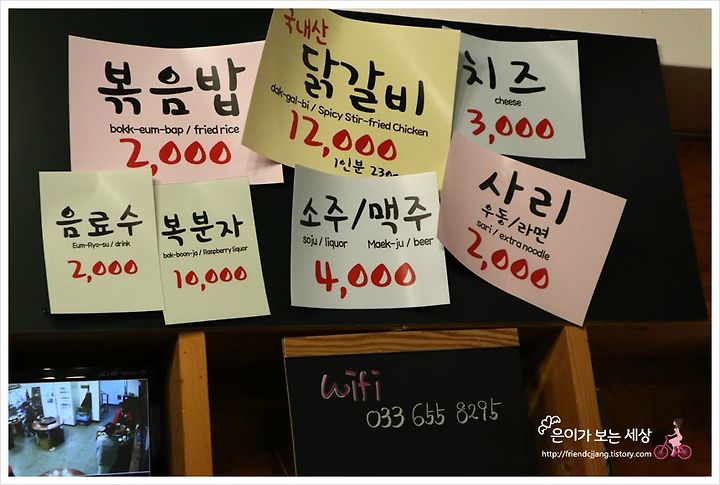 볶음밥
bokk-eum-bap / fried rice
2,000
국내산
닭갈비
dak-gal-bi / Spicy Stir-fried Chicken
12,000
1인분
치즈
cheese
3,000
음료수
Eum-Ryo-su / drink
2,000
복분자
bok-boon-ja / Raspberry liquor
10,000
소주/맥주
soju / liquor Maek-ju / beer
4,000
사리
우동/라면
sari / extra noodle
2,000
wifi
033 655 8295
은이가 보는 세상
http://friendcjjang.tistory.com